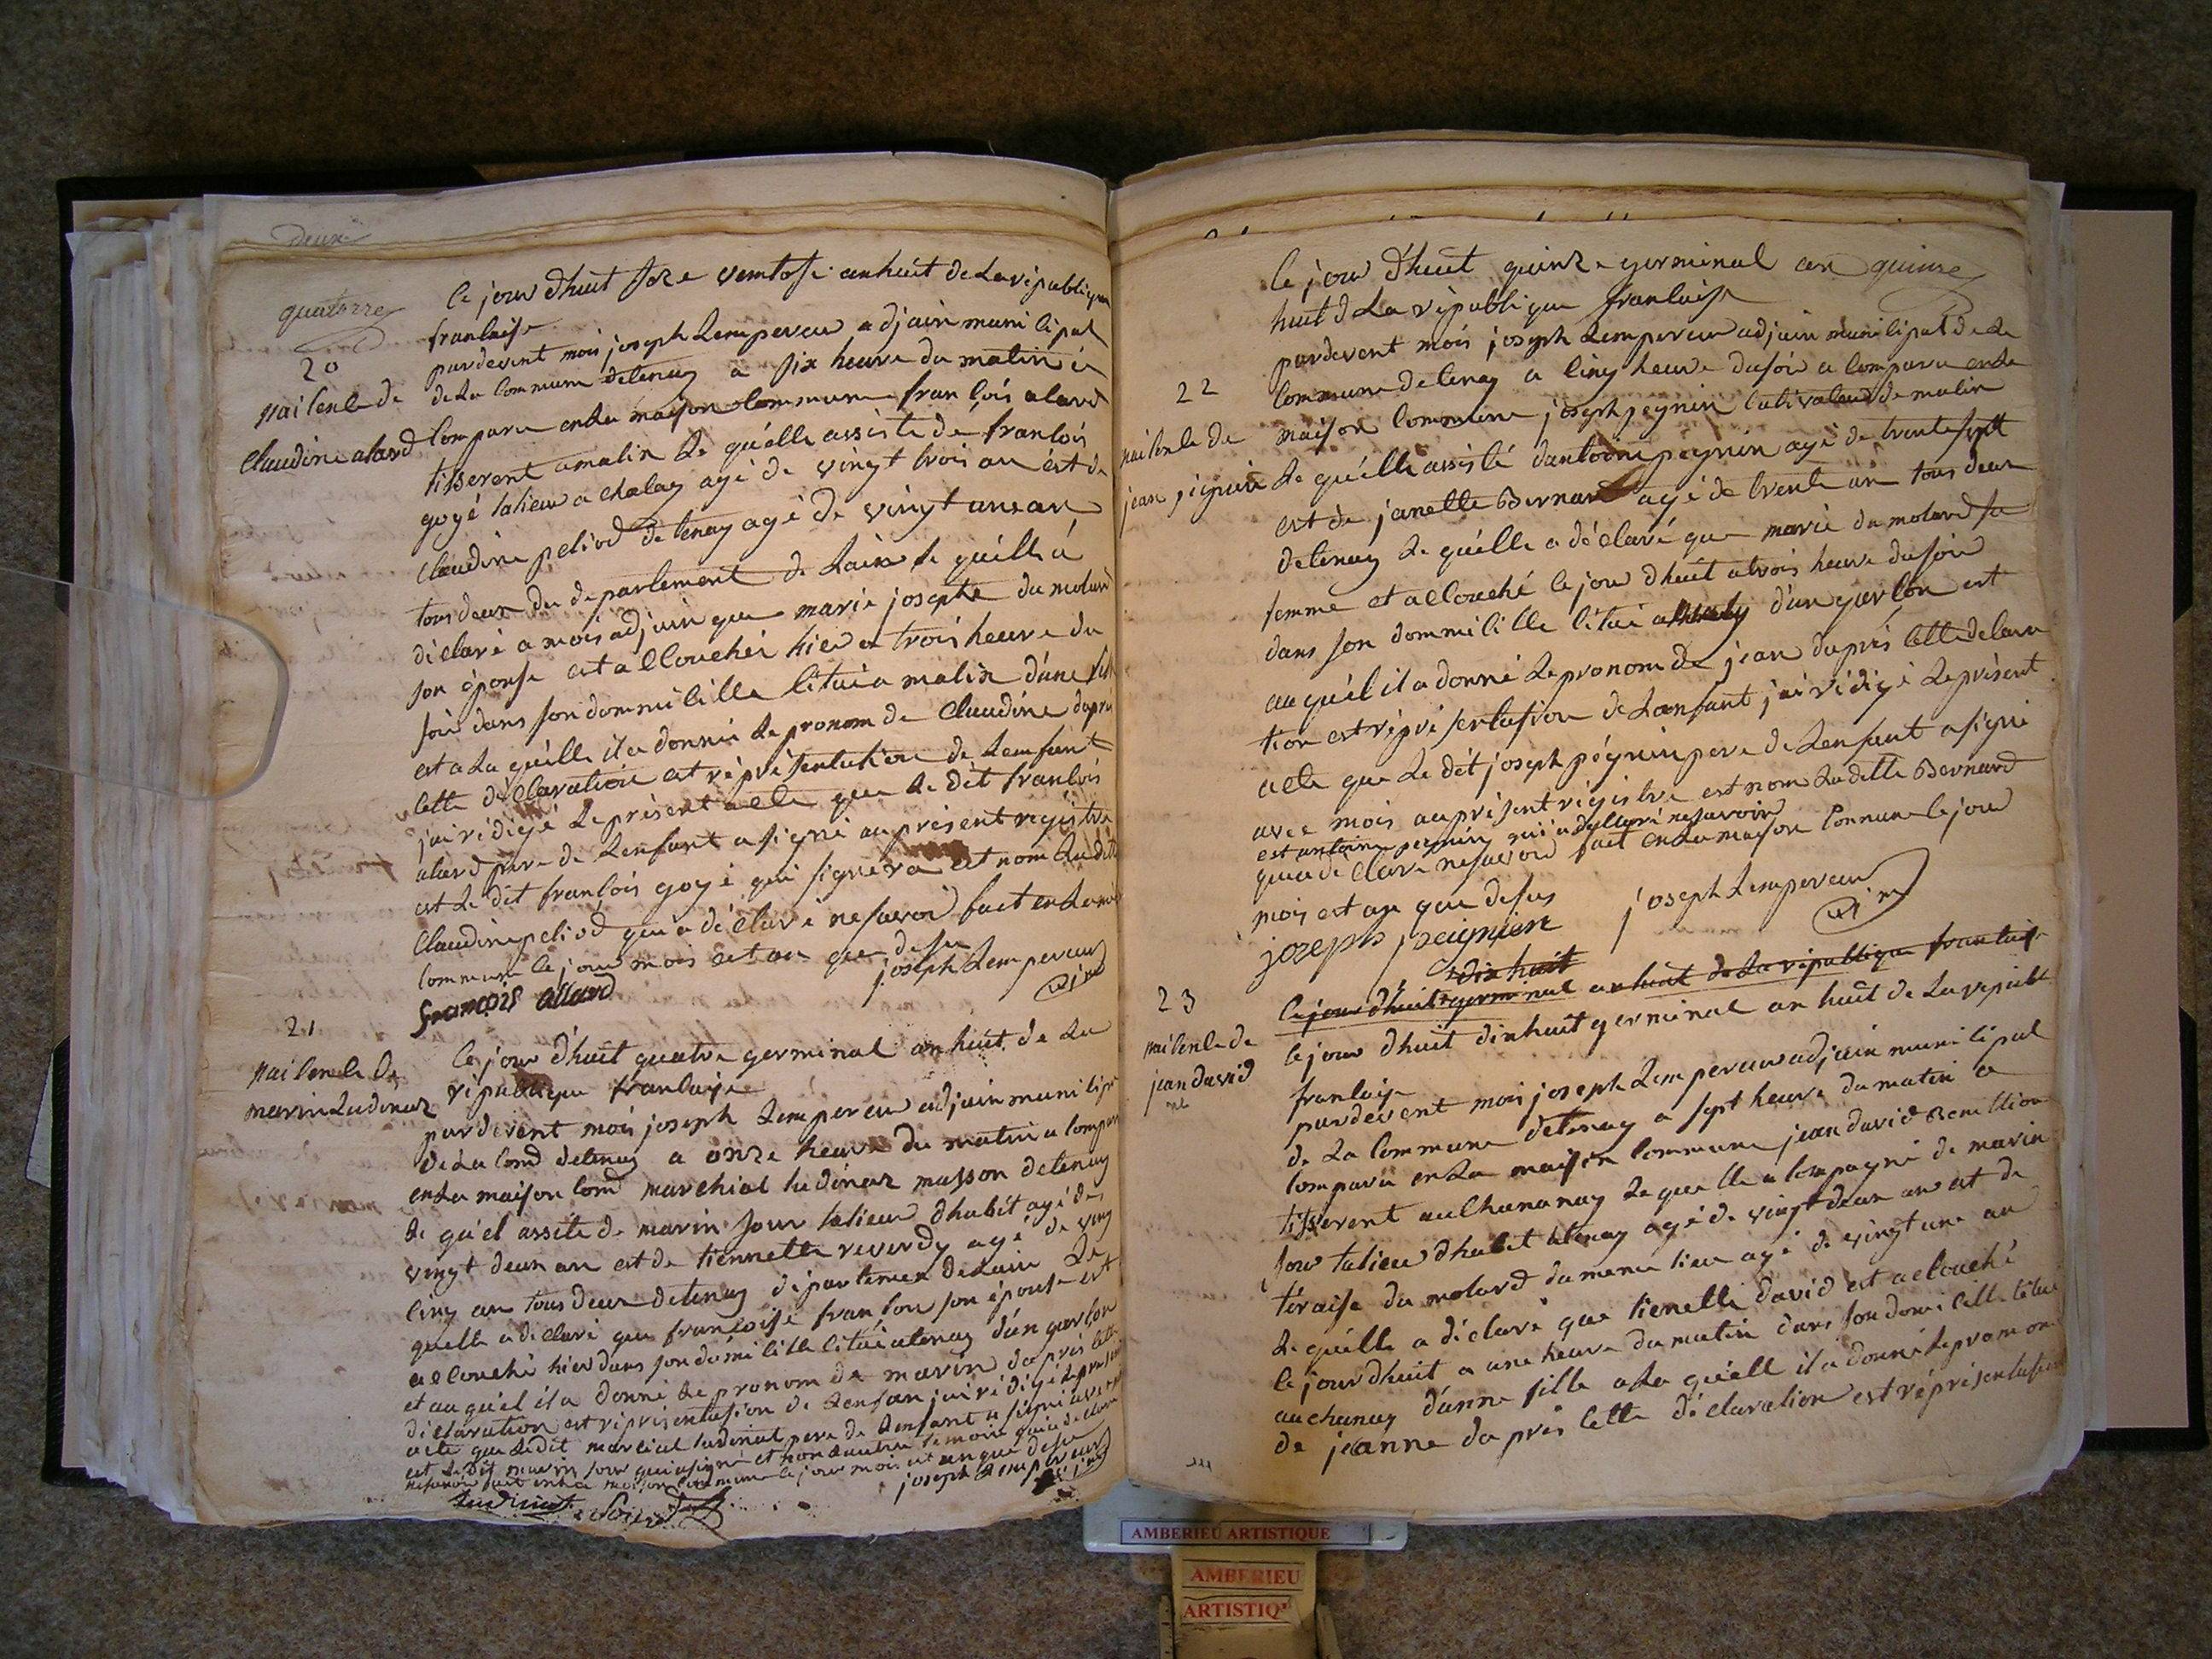 Deux
quatorze
le jour d'huit seze ventose an huit de La republique
francaise
20
pardevent mois joseph Lempereur adjoin municipal
naisence de
de La commune detenay a six heure du matin à
Claudine alard
comparu en La maison commune francois alard
tisserent a malix Le quelle assiste de francois
goyé talieur a chalay agé de vingt trois an est de
Claudine peliod de tenay agé de vingt un an
tous deux du departement de Lain Le quelle à
déclaré a mois adjoin que marie josephe du molard
son épouse est accouchéé hier a trois heure du
soir dans son dommicille citué a malix d'une fille
est a La quelle il a donné Le pronom de Claudine dapré
cette déclaration est réprésentation de Lenfant
jai rédigé Le présent acte que Le dit francois
alard pere de Lenfant a signé au présent registre
est Le dit francois goyé qui signera est nom Ladite
Claudine peliod qui a déclaré ne savoir fait en La mais
commune le jour mois est an que desu
françois allard
joseph Lempereur
adjoin
21
naisence de
marin Ludinaz
le jour d'huit quatre germinal an huit de La
république francaise
pardevent mois joseph Lempereur adjoin municipe
de La comd detenay a onze heure du matin a compar
en La maison comd marchial Ludinaz masson detenay
Le quel assite de marin Sour talieur dhabit agé de
vingt deux an est de tiennette reverdy agé de ving
cinq an tous deux detenay département de Lain Le
quelle a déclaré que françoise françon son épouse est
accouché hier dans son domicille citué atenay d'un garcon
et au quel il a donné Le pronom de marin daprès cette
déclaration est réprésentasion de Lenfan jai rédigé Le présen
acte que Ledit marcial Ludinat pere de Lenfant a signé avec
est Le dit marin sour qui a signé et non Lautre témoin qui a declaré
ne savoir fait en La maison commune le jour mois et an que desu
joseph Lempereur
adjoin
Ludinat Sour
le jour d'huit quinze germinal an quinze
huit d La république francaise
pardevent mois joseph Lempereur adjoin municipal de La
22
commune detenay a cinq heure du soir a comparu en La
naisence de
maison commune joseph peynin cultivateur de malix
jean peignin
Le quelle assisté d'antoine peynin agé de trente sept
est de janette Bernard agé de trente an tous deux
detenay Le quelle a déclaré que marie du molard sa
femme et accouché le jour d'huit a trois heure du soir
dans son dommicille citué a d'un garcon est
au quel il a donné Le pronom de jean daprés cette declara
tion est réprésentasion de Lenfant jai rédigé Le présent
acte que Le dit joseph péynin pere de Lenfant a signé
avec mois au présent régistre est nom La dite Bernard
est antoine peynin qui a dellaré ne savoir
qui a déclare ne savoir fait en La maison commune le jour
mois est an que desus
joseph Lempereur
adjoin
joseph peignien
dix huit
23
le jour d'huit germinal an huit de La république francaise
naisence de
le jour d'huit dixhuit germinal an huit de La républi
jean david
francaise
pardevent mois joseph Lempereur adjoin municipal
de La commune detenay a sept heure du matin a
comparu en La maison commune jean david Benillion
tisserent au Chananay Le quelle acompagné de marin
sour talieur dhabit atenay agé de vingt deux an et de
téraise du molard du meme lieu agé de vingt une an
Le quelle a déclaré que tienette david est accouché
le jour dhuit a une heure du matin dans son domicille citué
au chanay d'anne fille a La quelle il a donné Le pronom
de jeanne da prés cette déclaration est réprésentasion
AMBERIEU ARTISTIQUE
AMBERIEU
ARTISTIQ